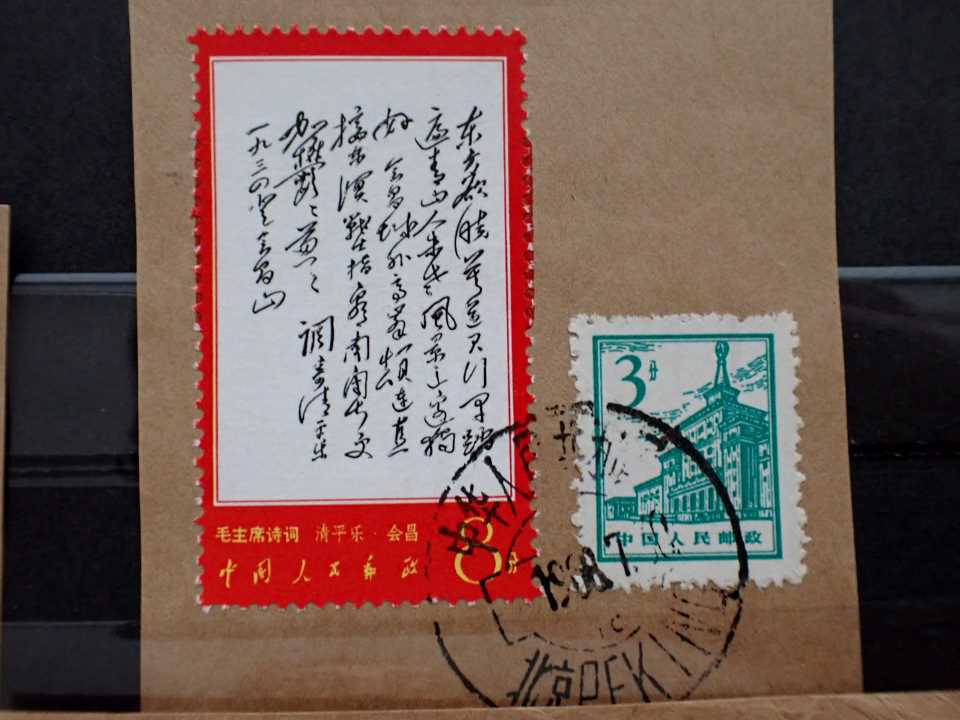 东方欲晓莫道君行早踏
遍青山人未老风景这边独
好 会昌城外高峰颠连直
接东溟战士指看南粤更
加郁〻葱〻 调寄清平乐
一九三四登会昌山
毛主席诗词 清平乐·会昌
中国人民邮政 8分
3分
中国人民邮政
中华人民
1968.7.
北京PEKING